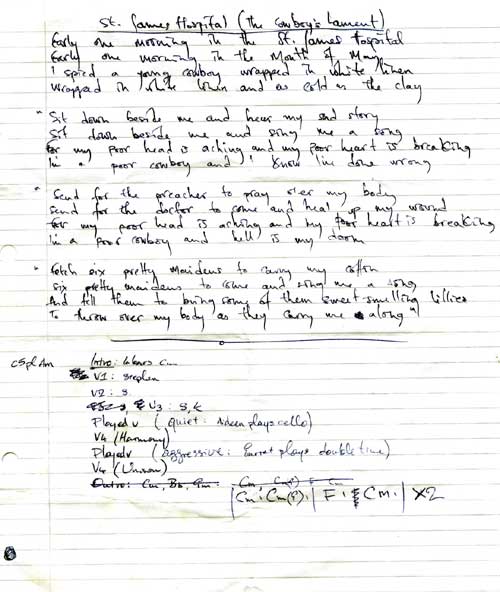 St. James Hospital (The Cowboy's Lament)
Early one morning in the St. James Hospital
Early one morning in the Month of May
I spied a young cowboy wrapped in white linen
Wrapped in white linen and as cold as the clay
"Sit down beside me and hear my sad story
Sit down beside me and sing me a song
for my poor head is aching and my poor heart is breaking
I'm a poor cowboy and I know I've done wrong
"Send for the preacher to pray o'er my body
Send for the doctor to come and heal up my wound
for my poor head is aching and my poor heart is breaking
I'm a poor cowboy and hell is my doom
"Fetch six pretty maidens to carry my coffin
Six pretty maidens to come and sing me a song
And tell them to bring some of them sweet smelling lillies
To throw over my body as they carry me along"
c5pl Am
Intro: 4 bars Cm
V1: Stephen
V2: S
V3: S, K
Played v (quiet: plays cello)
V4 (Harmony)
Played v (aggressive: plays double time)
V4 (Unison)
Outro: Cm, Bb, Gm Cm, Cm(?) F Cm
| Cm : Cm(?) : | F : Cm : | X2